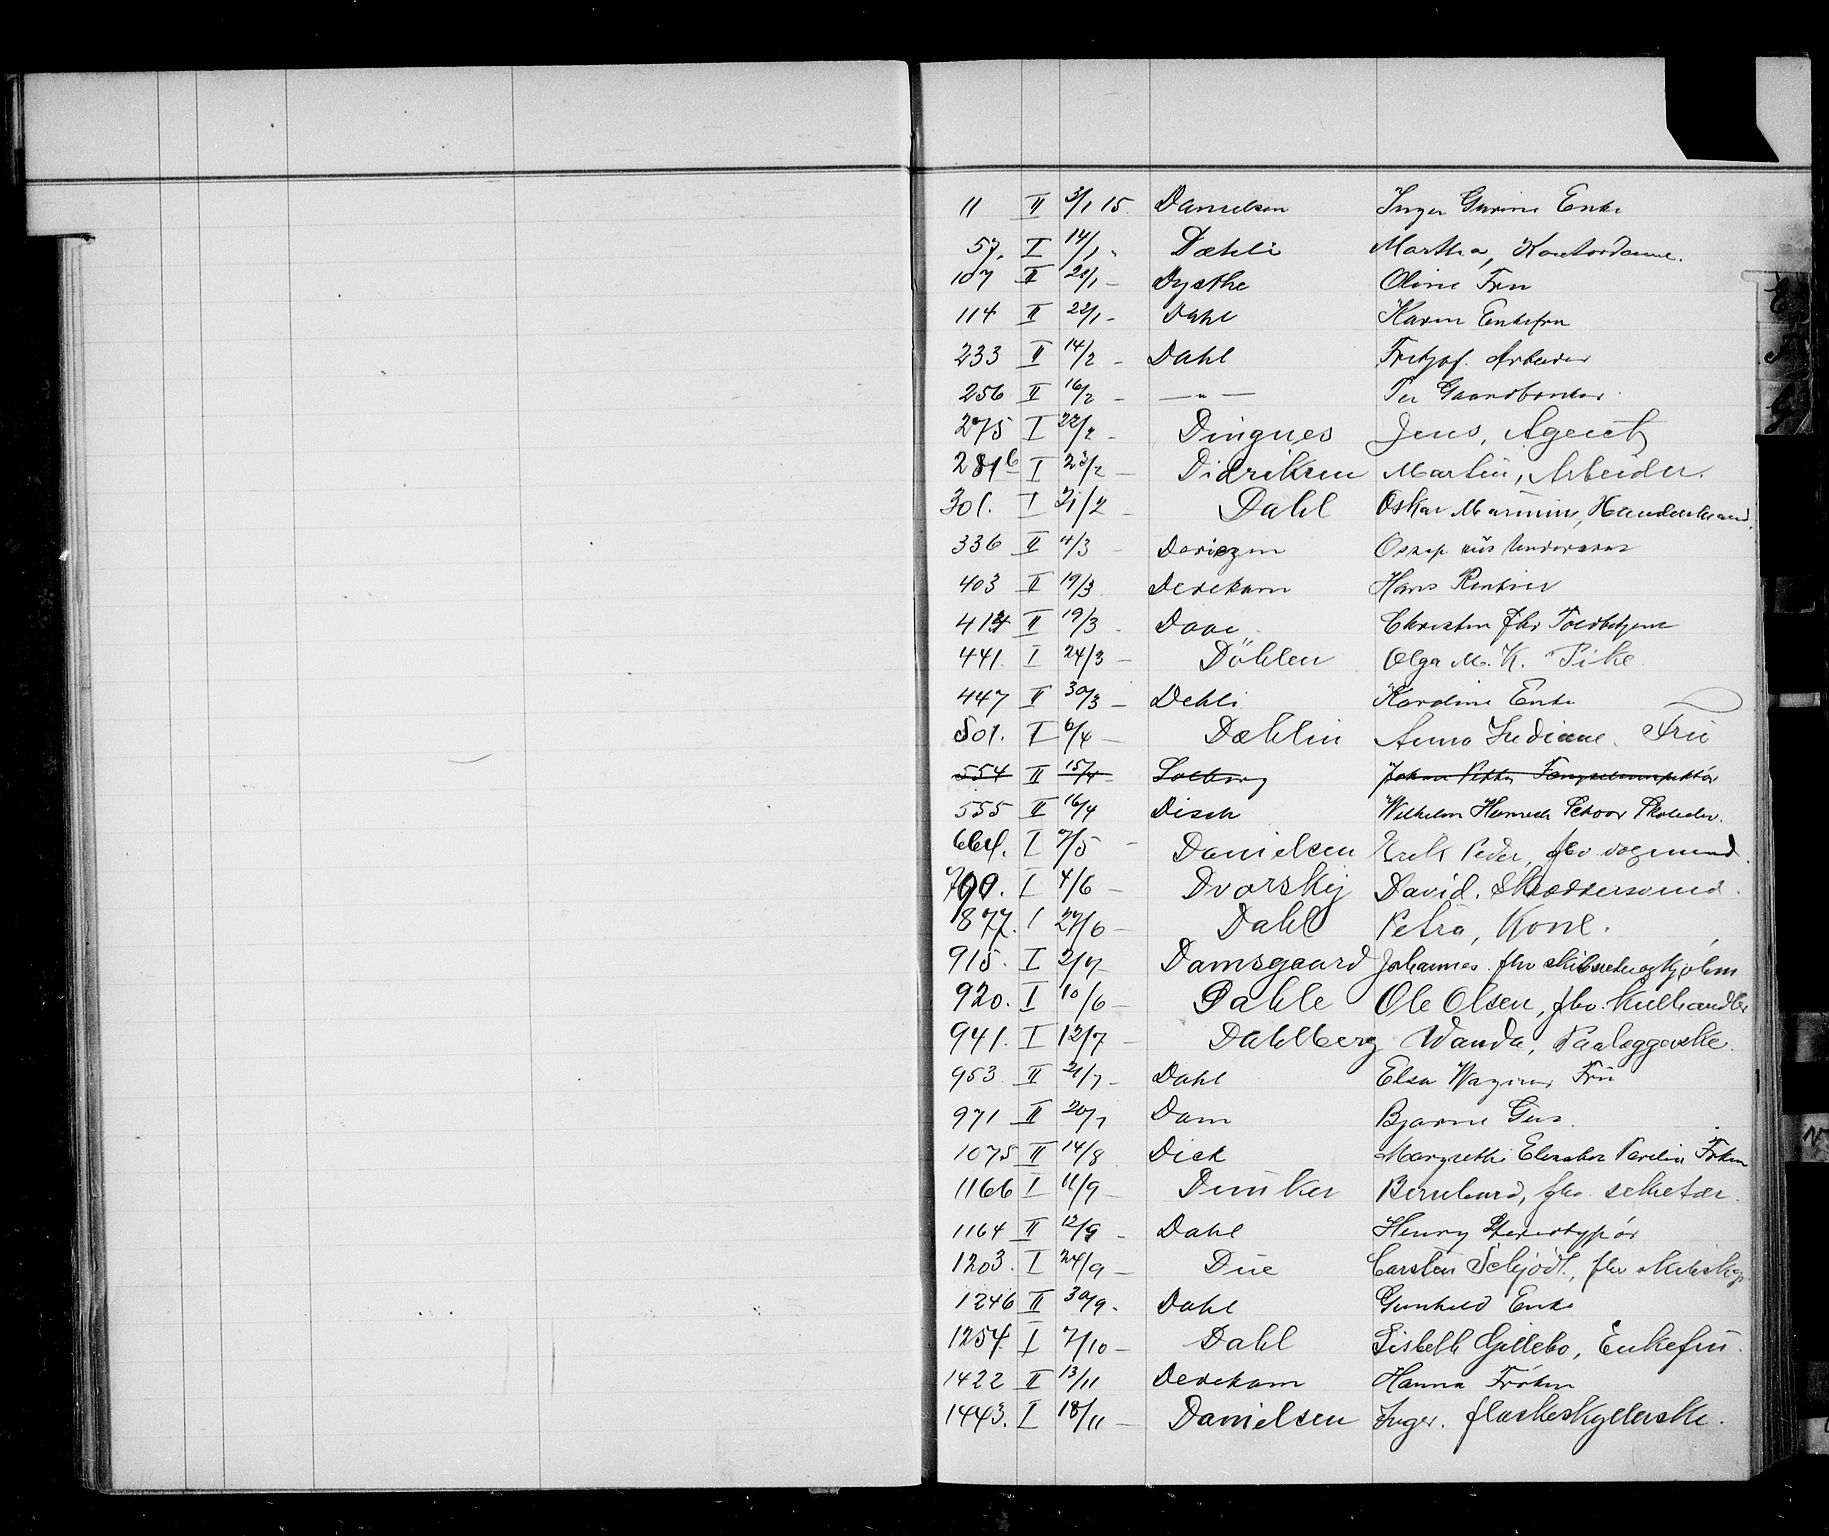 11 II 3/1 15. Danielsen Inger Gurine Enke
57. I 14/1 " Dæhli Martha, Kontordame.
107 II 20/1 - Dysthe Oline Fru
114 II 22/1 - Dahl Karen Enkefru
233 II 14/2 - Dahl Fritjof. Arbeider
256 II 16/2 - —"— Per Gaardbruker
275 I 22/2 - Dingnes Jens, Agent
281b I 23/2 - Didriksen Martin, Arbeider.
301. I 21/2 - Dahl Oskar
336 II 4/3 - Ossip
403 II 19/3 Devekam Hans Rentier
414 II 19/3 - Christen fhv Toldbetjent
441. I 24/3 - Döhlen Olga M. K. Pike.
447 II 30/3 - Dehli Karoline Enke
501. I 6/4 - Dæhlin Anna Indiane. Frü
554 II 15/4 - Solberg Johan Petter Fængselsinspektør
555 II 16/4 Disch Wilhelm Skoleelev.
664. I 7/5 - Danielsen Erik Peder, fhv vognmand.
700. I 4/6 - Dvorskij David. Skræddersvend.
877. I 27/6 - Dahl Petra, Kone.
915. I 2/7 - Damsgaard Johannes. fhv
920. I 10/6 - Dahle Ole Olsen, fhv. Kulhandler
941. I 12/7 - Dahlberg Wanda, Paalæggerske.
953. II 21/7 - Dahl Elsa Frü
971 II 20/7 Dam Bjarne
1075 II 14/8 Dick Margrethe Frøken
1166 I 11/9 - Dunker Bernhard, fhv. sekretær.
1164 II 12/9 - Dahl Henry Stereotypør
1203. I 24/9 - Due Carsten Schjödt, fhv
1246 II 30/9. Dahl Gunhild Enke
1254. I 7/10 - Dahl Lisbeth Gillebo, Enkefrü.
1422 II 13/11 Devekam Hanna Frøken
1443. I 18/11 - Danielsen Inger. flaskeskyllerske.